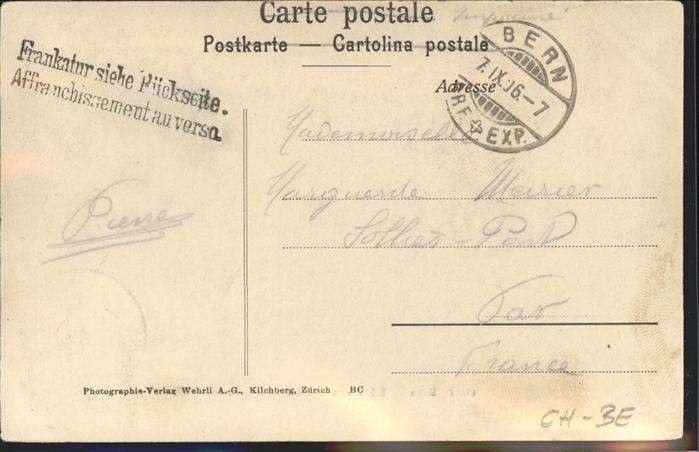 Carte postale
Imprimé
Postkarte — Cartolina postale
Adresse
Frankatur siehe Rückseite.
Affranchissement au verso
BERN
7.IX.06.–7
BRF EXP.
Mademoiselle
Marguerite Meirier
Solliès-Pont
Var
France
Pierre
Photographie-Verlag Wehrli A.-G., Kilchberg, Zürich BC
CH-BE